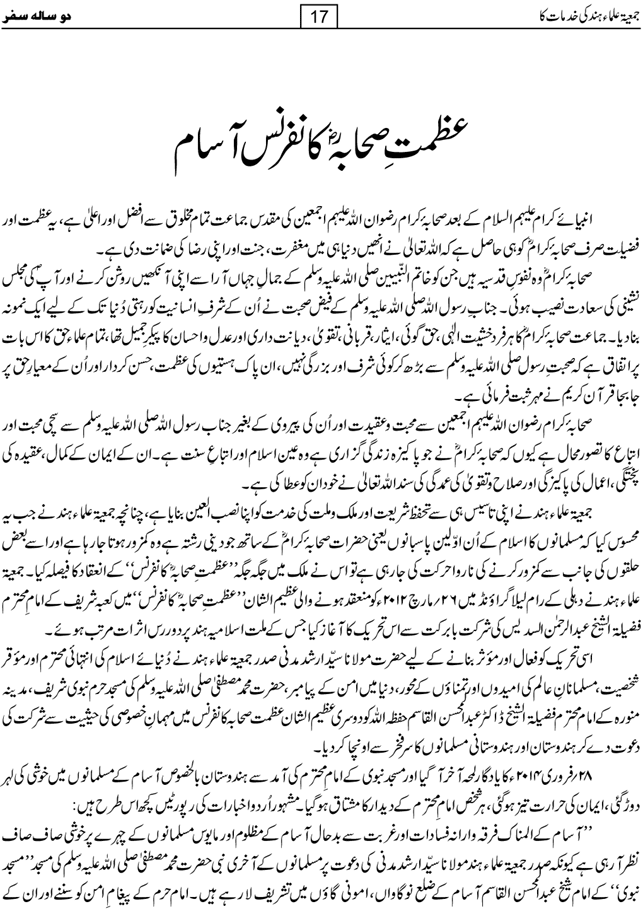 جمعیۃ علماء ہند کی خدمات کا
17
دو سالہ سفر
عظمتِ صحابہؓ کانفرنس آسام
انبیائے کرام علیہم السلام کے بعد صحابۂ کرام رضوان اللہ علیہم اجمعین کی مقدس جماعت تمام مخلوق سے افضل اور اعلیٰ ہے، یہ عظمت اور
فضیلت صرف صحابۂ کرامؓ کو ہی حاصل ہے کہ اللہ تعالیٰ نے انھیں دنیا ہی میں مغفرت، جنت اور اپنی رضا کی ضمانت دی ہے۔
صحابۂ کرامؓ وہ نفوسِ قدسیہ ہیں جن کو خاتم النّبیین صلی اللہ علیہ وسلم کے جمالِ جہاں آرا سے اپنی آنکھیں روشن کرنے اور آپؐ کی مجلس
نشینی کی سعادت نصیب ہوئی۔ جناب رسول اللہ صلی اللہ علیہ وسلم کے فیض صحبت نے اُن کے شرفِ انسانیت کو رہتی دُنیا تک کے لیے ایک نمونہ
بنادیا۔ جماعت صحابۂ کرامؓ کا ہر فرد خشیت الٰہی، حق گوئی، ایثار، قربانی، تقویٰ، دیانت داری اور عدل و احسان کا پیکرِ جمیل تھا، تمام علماءِ حق کا اس بات
پر اتفاق ہے کہ صحبتِ رسول صلی اللہ علیہ وسلم سے بڑھ کر کوئی شرف اور بزرگی نہیں، ان پاک ہستیوں کی عظمت، حسن کردار اور اُن کے معیارِ حق پر
جا بجا قرآن کریم نے مہر ثبت فرمائی ہے۔
صحابۂ کرام رضوان اللہ علیہم اجمعین سے محبت و عقیدت اور اُن کی پیروی کے بغیر جناب رسول اللہ صلی اللہ علیہ وسلم سے سچی محبت اور
اتباع کا تصور محال ہے کیوں کہ صحابۂ کرامؓ نے جو پاکیزہ زندگی گزاری ہے وہ عین اسلام اور اتباع سنت ہے۔ ان کے ایمان کے کمال، عقیدہ کی
پختگی، اعمال کی پاکیزگی اور صلاح و تقویٰ کی عمدگی کی سند اللہ تعالیٰ نے خود ان کو عطا کی ہے۔
جمعیۃ علماء ہند نے اپنی تاسیس ہی سے تحفظ شریعت اور ملک و ملت کی خدمت کو اپنا نصب العین بنایا ہے، چنانچہ جمعیۃ علماء ہند نے جب یہ
محسوس کیا کہ مسلمانوں کا اسلام کے اُن اوّلین پاسبانوں یعنی حضرات صحابۂ کرامؓ کے ساتھ جو دینی رشتہ ہے وہ کمزور ہوتا جارہا ہے اور اسے بعض
حلقوں کی جانب سے کمزور کرنے کی ناروا حرکت کی جارہی ہے تو اس نے ملک میں جگہ جگہ ’’عظمتِ صحابہؓ کانفرنس‘‘ کے انعقاد کا فیصلہ کیا۔ جمعیۃ
علماء ہند نے دہلی کے رام لیلا گراؤنڈ میں ۲۶؍مارچ ۲۰۱۲ء کو منعقد ہونے والی عظیم الشان ’’عظمتِ صحابہؓ کانفرنس‘‘ میں کعبہ شریف کے امام محترم
فضیلۃ الشیخ عبدالرحمٰن السدیس کی شرکت بابرکت سے اس تحریک کا آغاز کیا جس کے ملت اسلامیہ ہند پر دوررس اثرات مرتب ہوئے۔
اسی تحریک کو فعال اور مؤثر بنانے کے لیے حضرت مولانا سیّد ارشد مدنی صدر جمعیۃ علماء ہند نے دُنیائے اسلام کی انتہائی محترم اور مؤقر
شخصیت، مسلمانانِ عالم کی امیدوں اور تمناؤں کے محور، دنیا میں امن کے پیامبر، حضرت محمد مصطفیٰ صلی اللہ علیہ وسلم کی مسجد حرم نبوی شریف، مدینہ
منورہ کے امام محترم فضیلۃ الشیخ ڈاکٹر عبدالمحسن القاسم حفظہ اللہ کو دوسری عظیم الشان عظمت صحابہ کانفرنس میں مہمان خصوصی کی حیثیت سے شرکت کی
دعوت دے کر ہندوستان اور ہندوستانی مسلمانوں کا سر فخر سے اونچا کردیا۔
۲۸؍فروری ۲۰۱۴ء کا یادگار لمحہ آخر آگیا اور مسجد نبوی کے امام محترم کی آمد سے ہندوستان بالخصوص آسام کے مسلمانوں میں خوشی کی لہر
دوڑ گئی، ایمان کی حرارت تیز ہوگئی، ہر شخص امام محترم کے دیدار کا مشتاق ہوگیا۔ مشہور اُردو اخبارات کی رپورٹیں کچھ اس طرح ہیں:
’’آسام کے المناک فرقہ وارانہ فسادات اور غربت سے بدحال آسام کے مظلوم اور مایوس مسلمانوں کے چہرے پر خوشی صاف صاف
نظر آرہی ہے کیونکہ صدر جمعیۃ علماء ہند مولانا سیّد ارشد مدنی کی دعوت پر مسلمانوں کے آخری نبی حضرت محمد مصطفیٰ صلی اللہ علیہ وسلم کی مسجد ’’مسجد
نبوی‘‘ کے امام شیخ عبدالمحسن القاسم آسام کے ضلع نوگاواں، امونی گاؤں میں تشریف لا رہے ہیں۔ امام حرم کے پیغامِ امن کو سننے اور ان کے